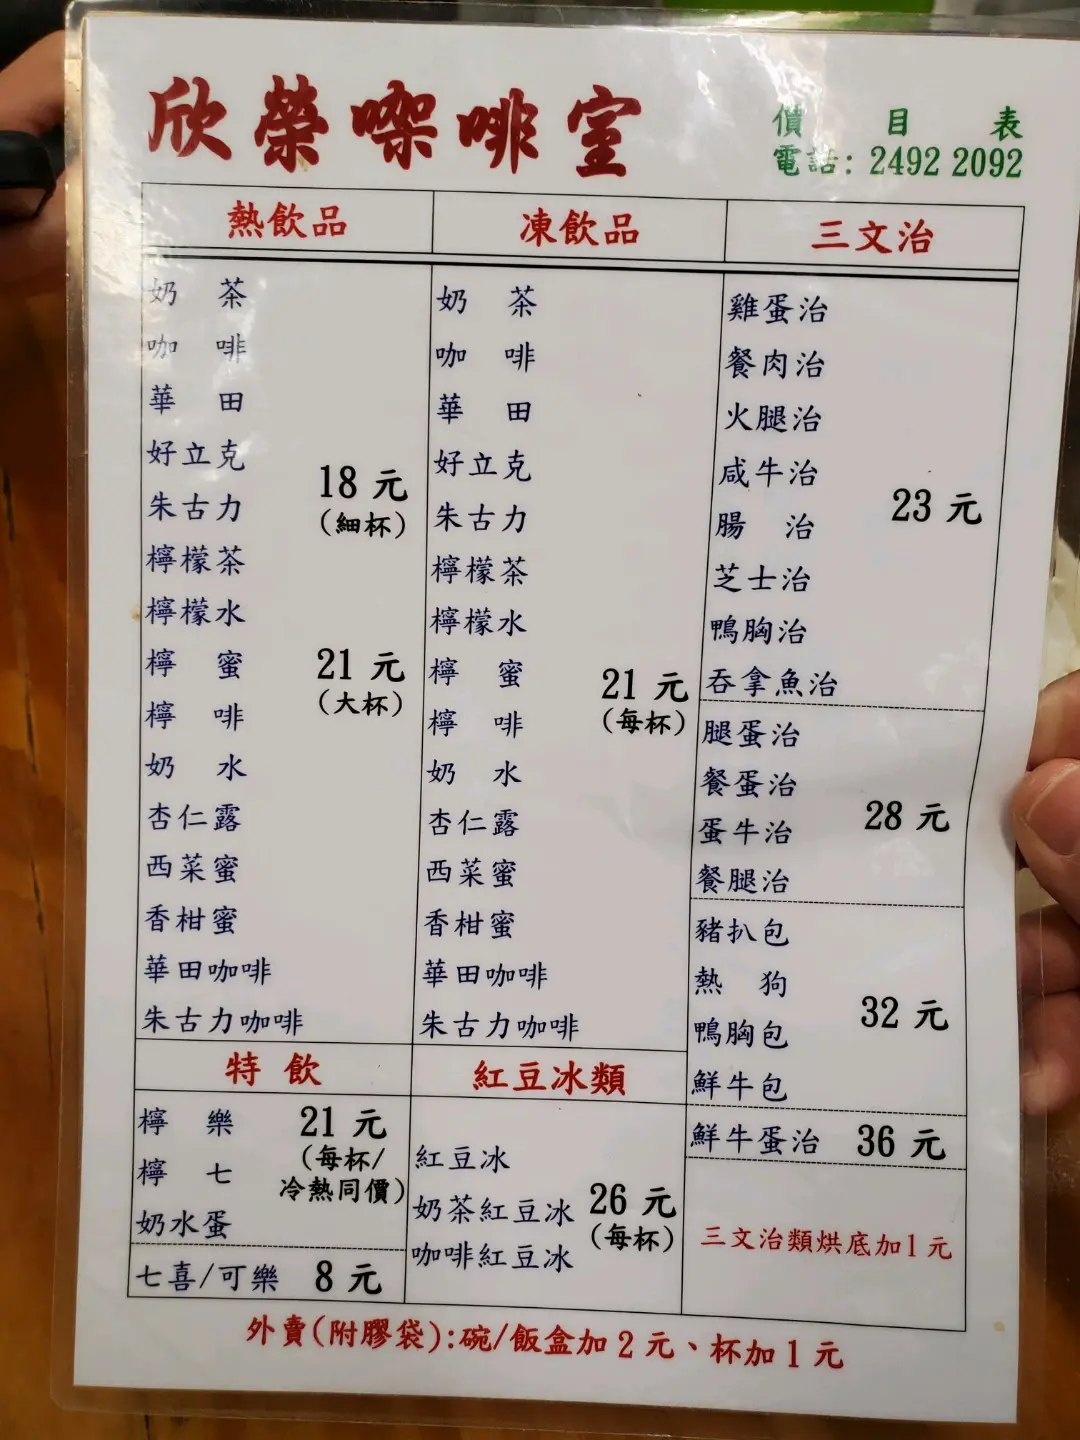 欣榮㗎啡室
價目表
電話: 2492 2092
熱飲品
奶茶
咖啡
華田
好立克
朱古力
檸檬茶
檸檬水
檸蜜
檸啡
奶水
杏仁露
西菜蜜
香柑蜜
華田咖啡
朱古力咖啡
18 元
(細杯)
21 元
(大杯)
凍飲品
奶茶
咖啡
華田
好立克
朱古力
檸檬茶
檸檬水
檸蜜
檸啡
奶水
杏仁露
西菜蜜
香柑蜜
華田咖啡
朱古力咖啡
21 元
(每杯)
三文治
雞蛋治
餐肉治
火腿治
咸牛治
腸治
芝士治
鴨胸治
吞拿魚治
23 元
腿蛋治
餐蛋治
蛋牛治
餐腿治
28 元
豬扒包
熱狗
鴨胸包
鮮牛包
32 元
鮮牛蛋治 36 元
三文治類烘底加1元
特飲
檸樂
檸七
奶水蛋
21 元
(每杯/
冷熱同價)
七喜/可樂 8 元
紅豆冰類
紅豆冰
奶茶紅豆冰
咖啡紅豆冰
26 元
(每杯)
外賣(附膠袋):碗/飯盒加2元、杯加1元